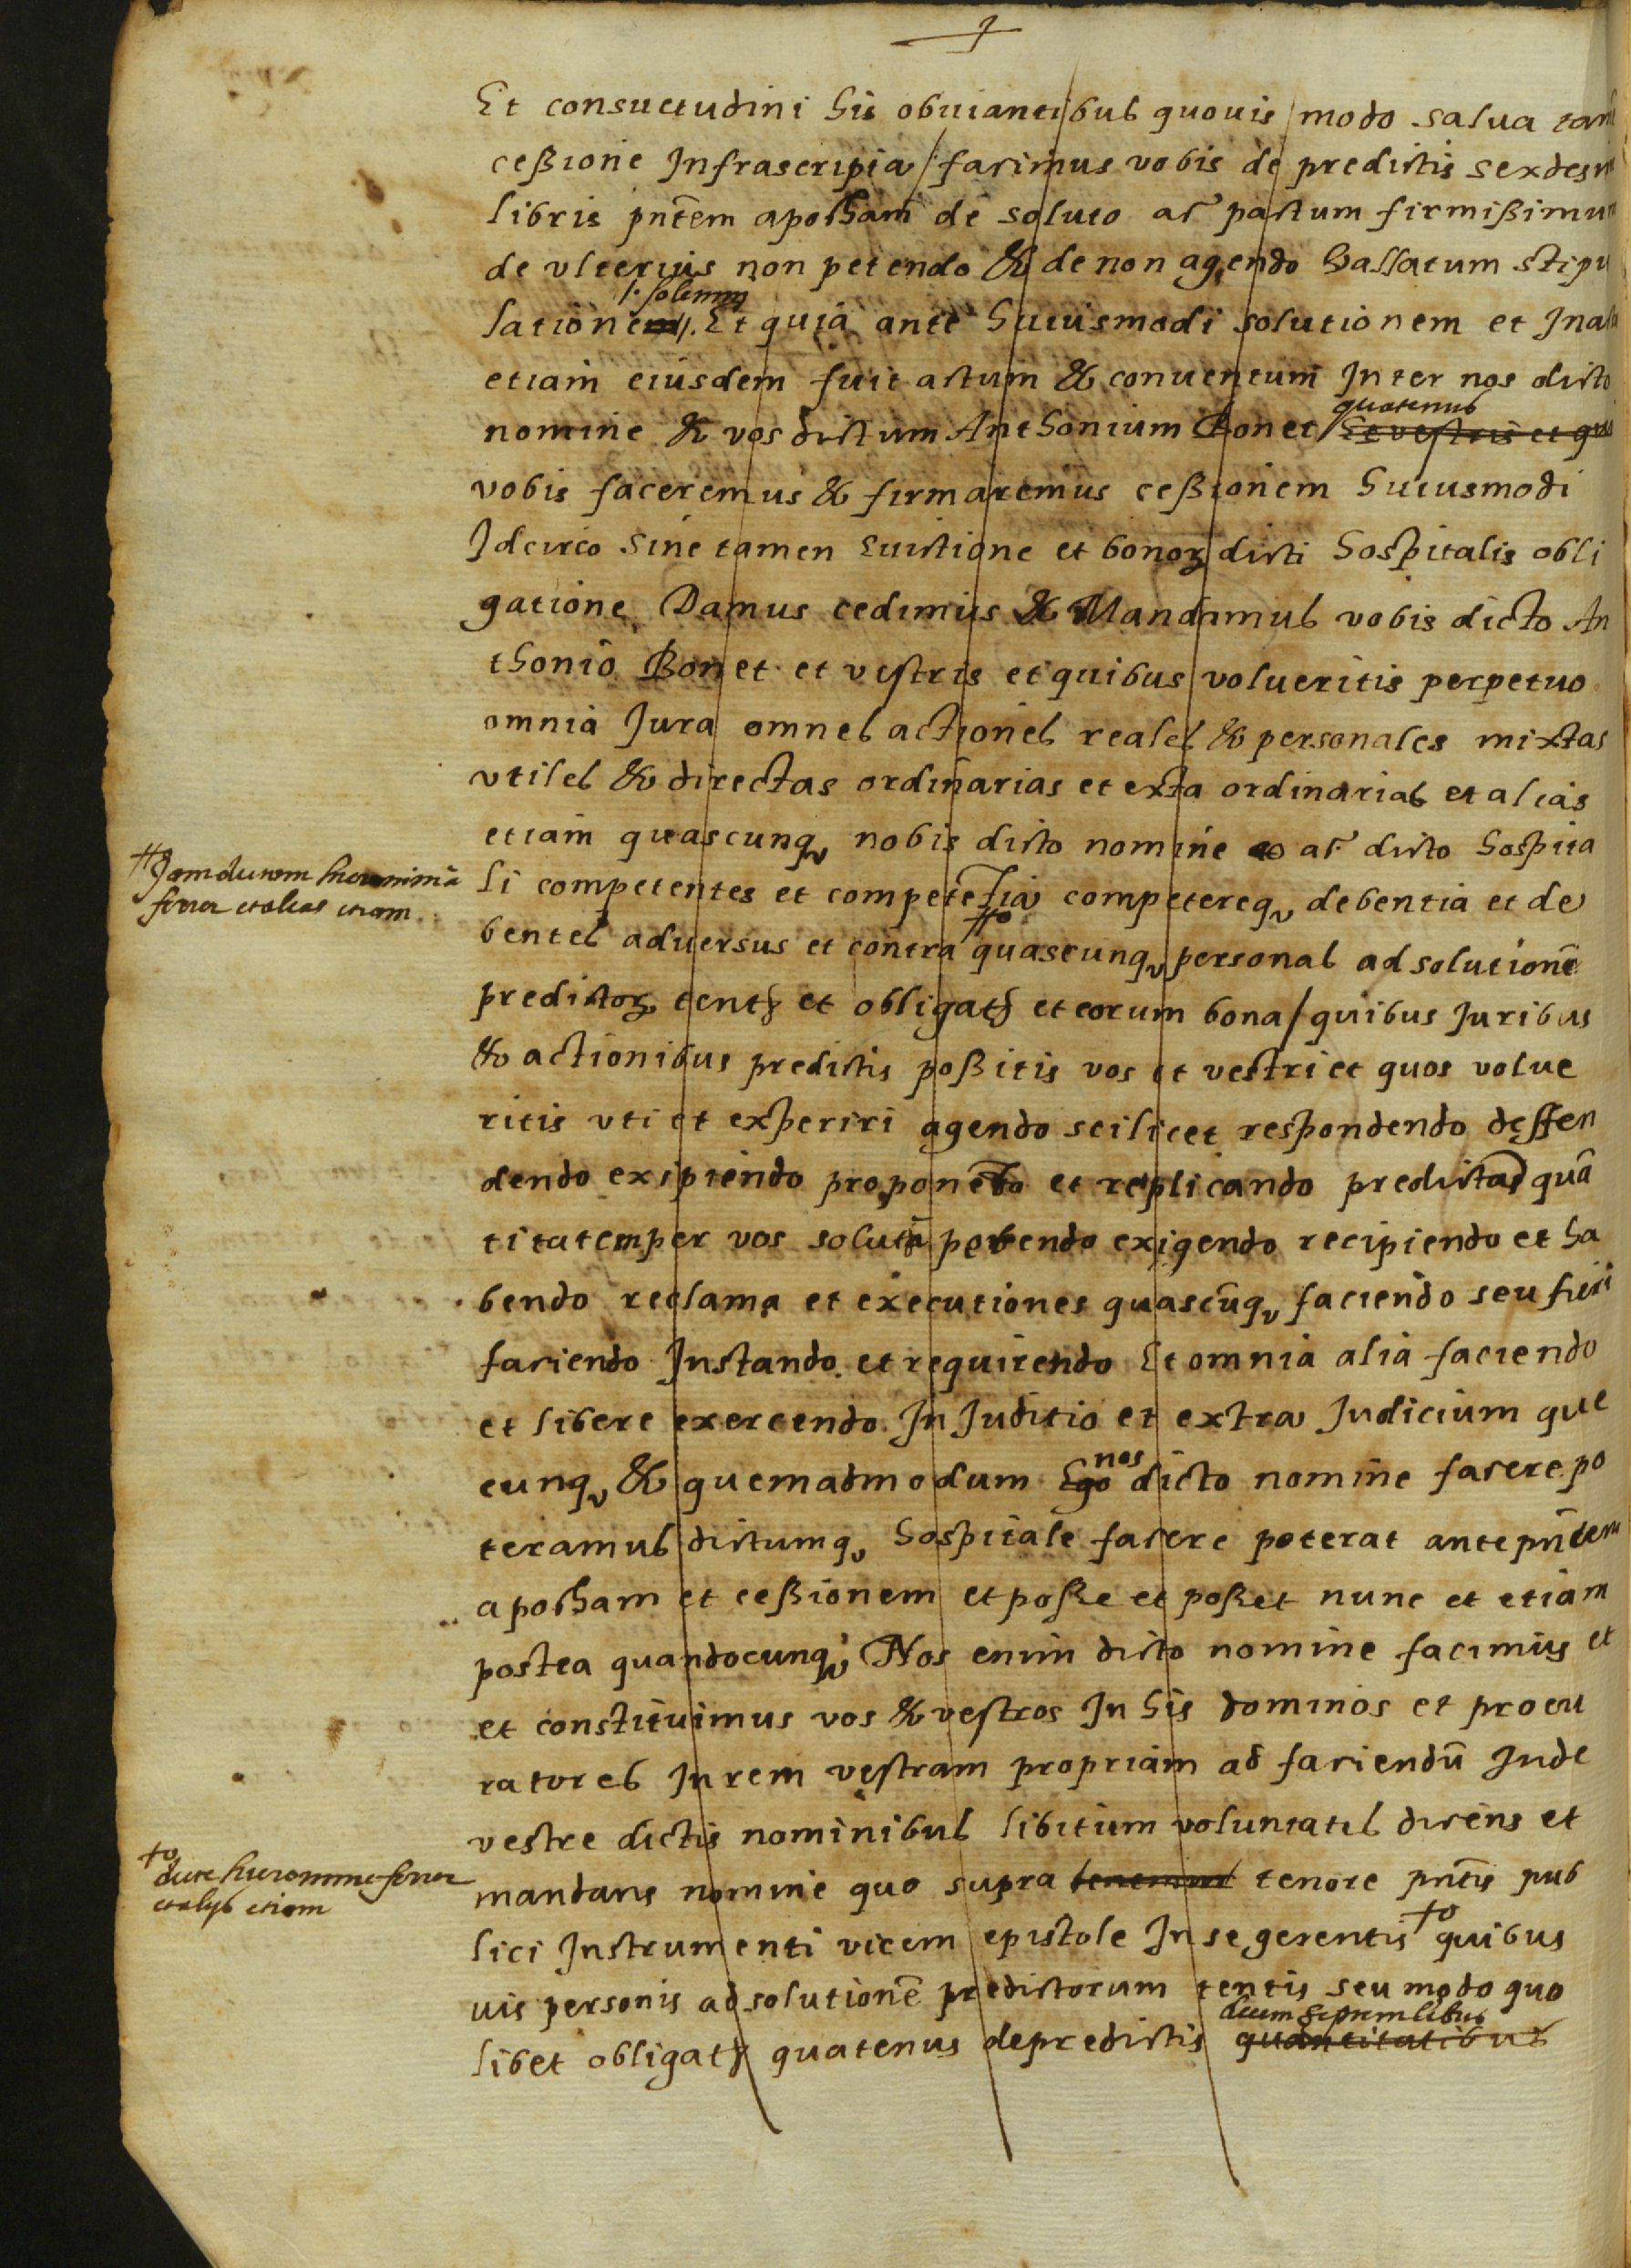 Et consuetudini his obuiantibus quouis modo salua tam
ceßione Infrascripta / facimus vobis de predictis sexdecim
libris pn̄tem apocham de soluto ac pactum firmißimum
de vlterius non petendo & de non agendo vallatum stipu
solemni
latione Et quia ante huiusmodi solutionem et In
etiam eiusdem fuit actum & conuentum Inter nos dicto
quatenus
nomine & vos dictum Anthonium Bonet / Et vestris et qui
vobis faceremus & firmaremus ceßionem huiusmodi
Idcirco sine tamen euictione et bonoꝝ dicti hospitalis obli
gatione Damus cedimus & Mandamus vobis dicto An
thonio Bonet et vestris et quibus volueritis perpetuo
omnia Jura omnes actiones reales & personales mixtas
vtiles & directas ordinarias et exta ordinarias et alias
etiam quascunqꝫ nobis dicto nomine ac dicto hospita
li competentes et competētia competereqꝫ debentia et de
bentes aduersus et contra # quascunqꝫ personas ad solutionē
# Jam dictam hieronimā
ferrer et alias etiam
predictoꝝ tentꝫ et obligatꝫ et eorum bona / quibus Juribus
& actionibus predictis poßitis vos et vestri et quos volue
ritis vti et experiri agendo scilicet respondendo deffen
dendo exipiendo proponēdo et replicando predictam quā
titatem per vos solutā petendo exigendo recipiendo et ha
bendo reclama et executiones quascūqꝫ faciendo seu fieri
faciendo Instando et requirendo Et omnia alia faciendo
et libere exercendo In Juditio et extra Judicium que
nos
cunqꝫ & quemadmodum Ego dicto nomine facere po
teramus dictumqꝫ hospitale facere poterat ante pn̄tem
apocham et ceßionem et poße et poßet nunc et etiam
postea quandocunqꝫ Nos enim dicto nomine facimus et
et constituimus vos & vestros In his dominos et procu
ratores In rem vestram propriam ad faciendū Inde
vestre dictis nominibus libitum voluntatis dicens et
mandans nomine quo supra tenemur tenore pn̄tis pub
to
dicte hieronime ferrer
et alijs etiam
lici Instrumenti vicem epistole In se gerentis to quibus
uis personis ad solutionē predictorum tentis seu modo quo
decim septem libris
libet obligatꝫ quatenus de predictis quantitatibus